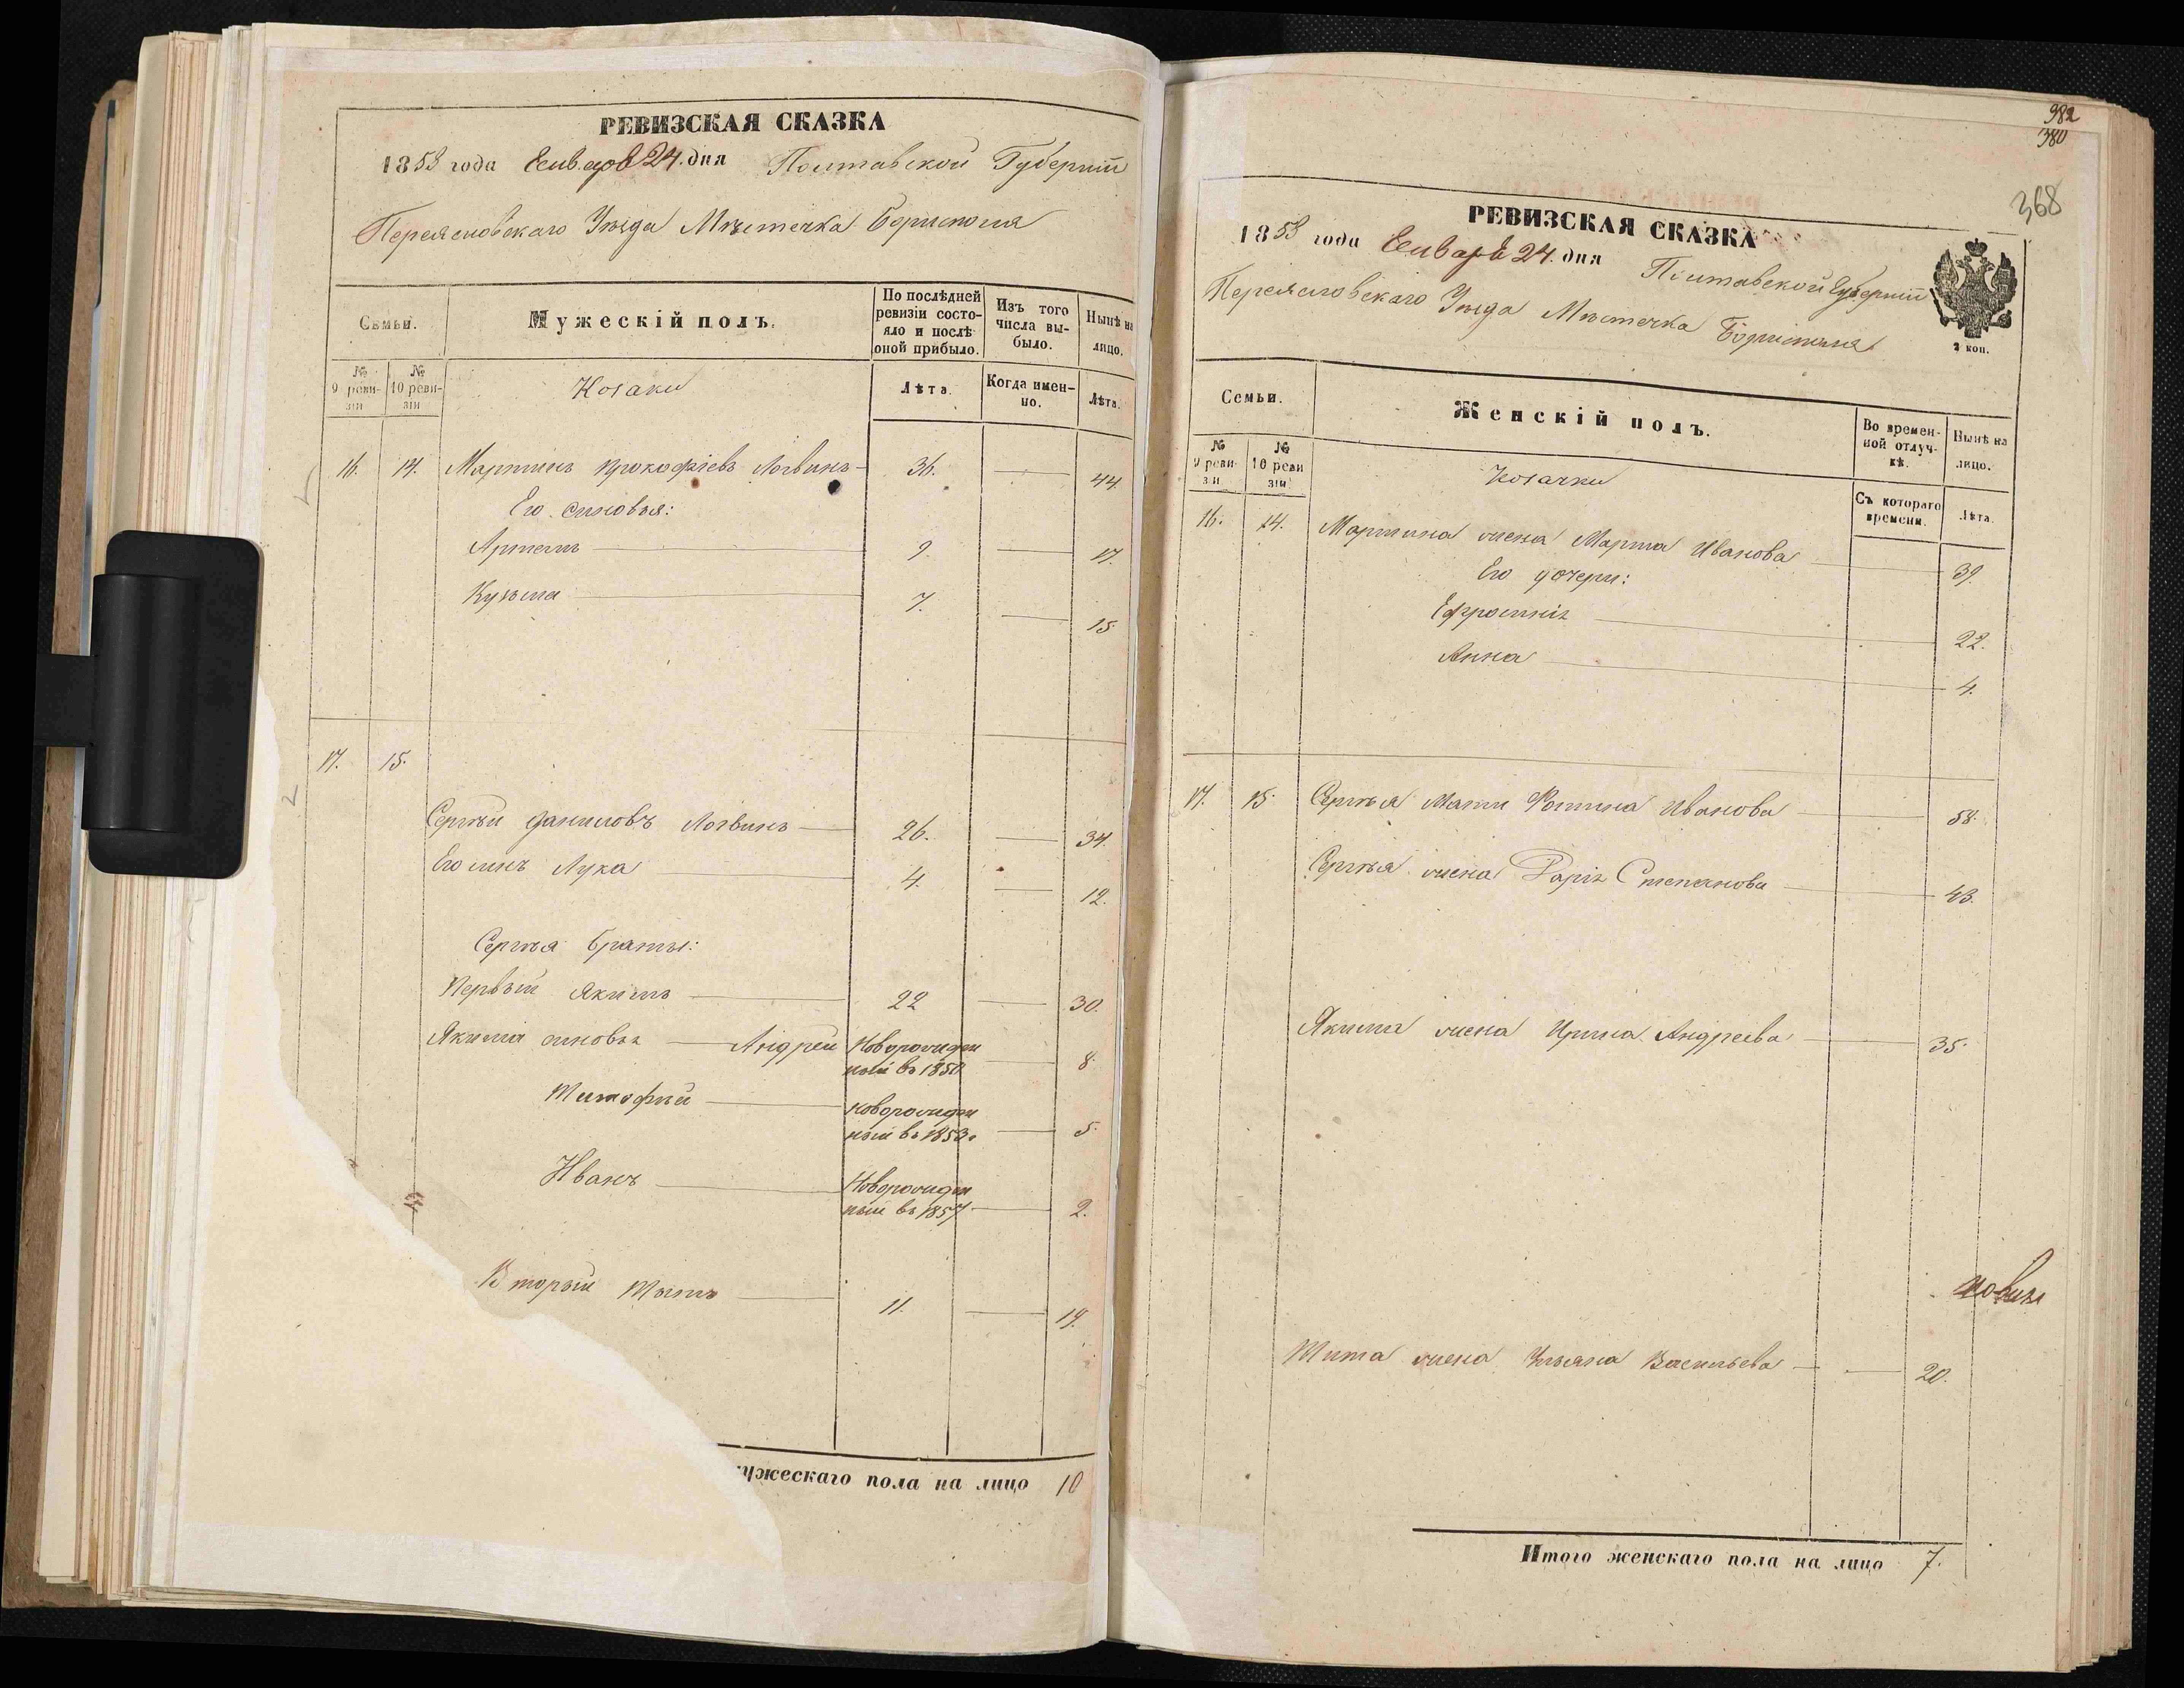 РЕВИЗСКАЯ СКАЗКА
1858 года Генваря 24. дня Полтавской Губерніи
Переяславскаго Уѣзда Мѣстечка Борисполя
Семьи.
Мужескій полъ.
По послѣдней ревизіи состояло и послѣ оной прибыло.
Изъ того числа выбыло.
Нынѣ на лицо.
№ 9 ревизіи
№ 10 ревизіи
Козаки
Лѣта.
Когда именно.
Лѣта.
16. 14. Мартинъ Прокофіевъ Логвинъ 36. 44.
Его синовья:
Артемъ 9. 17.
Кузьма 7. 15.
17. 15.
Сергѣй Даниловъ Логвинъ 26. 34.
Его синъ Лука 4. 12.
Сергѣя браты:
Первый Якимъ 22 30.
Якима синовья Андрей Новорожден
ный въ 1850 8.
Тимофѣй новорожден
ный въ 1853г 5.
Иванъ Новорожден
ный въ 1857 2.
Вторый Титъ 11. 19.
ужескаго пола на лицо 10
982
380
368
РЕВИЗСКАЯ СКАЗКА
1858 года Генваря 24. дня Полтавской Губерніи
Переяславскаго Уѣзда Мѣстечка Борисполя
2 коп.
Семьи.
Женскій полъ.
Во временной отлучкѣ.
Нынѣ на лицо.
№ 9 ревизіи
№ 10 ревизіи
Козачки
Съ котораго времени.
Лѣта.
16. 14. Мартина жена Марта Иванова 39.
Его дочери:
Ефросинія 22.
Анна 4.
17. 15. Сергѣя Мати Иванова 58.
Сергѣя жена Дарія Степанова 43.
Якима жена Ирина Андреева 35.
Тита жена Ульяна Васильева 20.
Итого женскаго пола на лицо 7.